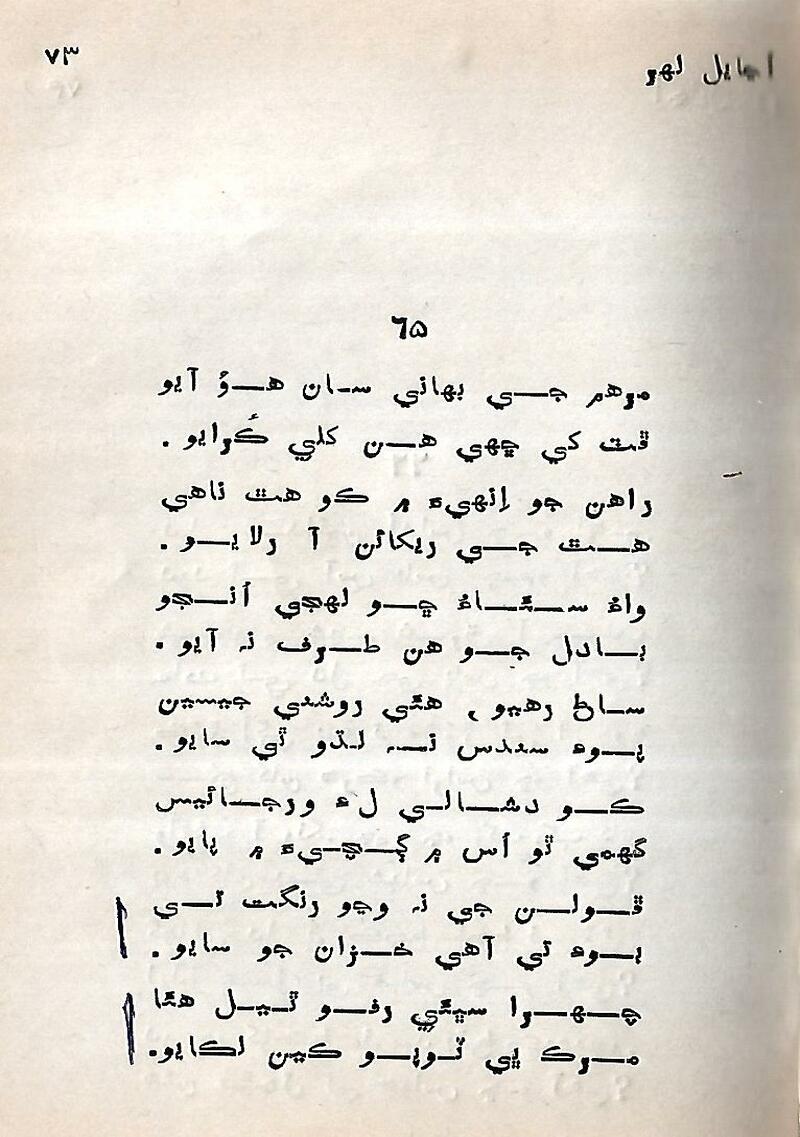 اڃايل لهر
٧٣
٦٥
مرهم جي بهاني سان هوُ آيو
ڦٽ کي ڇهي هن کلي ڪُرايو .
راهن جو اِنهيءَ ۾ ڪو هٿ ناهي
هٿ جي ريکائن آ رلايو .
واءُ سٿاءُ ڇو لهجي اُڃ جو
بادل جو هن طرف نہ آيو .
ساڻ رهيو، هئي روشني جيسين
پوءِ سندس نہ لڌو ئي سايو .
ڪو دشالي لاءِ ورجائيس
گهمي ٿو اُس ۾ ڳچيءَ ۾ پايو .
ڦولن جي نہ وڃو رنگت تي
پوءِ ئي آهي خزان جو سايو .
چهرا سڀئي رفو ٿيل هئا
مرڪ ٻي ٽوپو ڪين لڪايو.